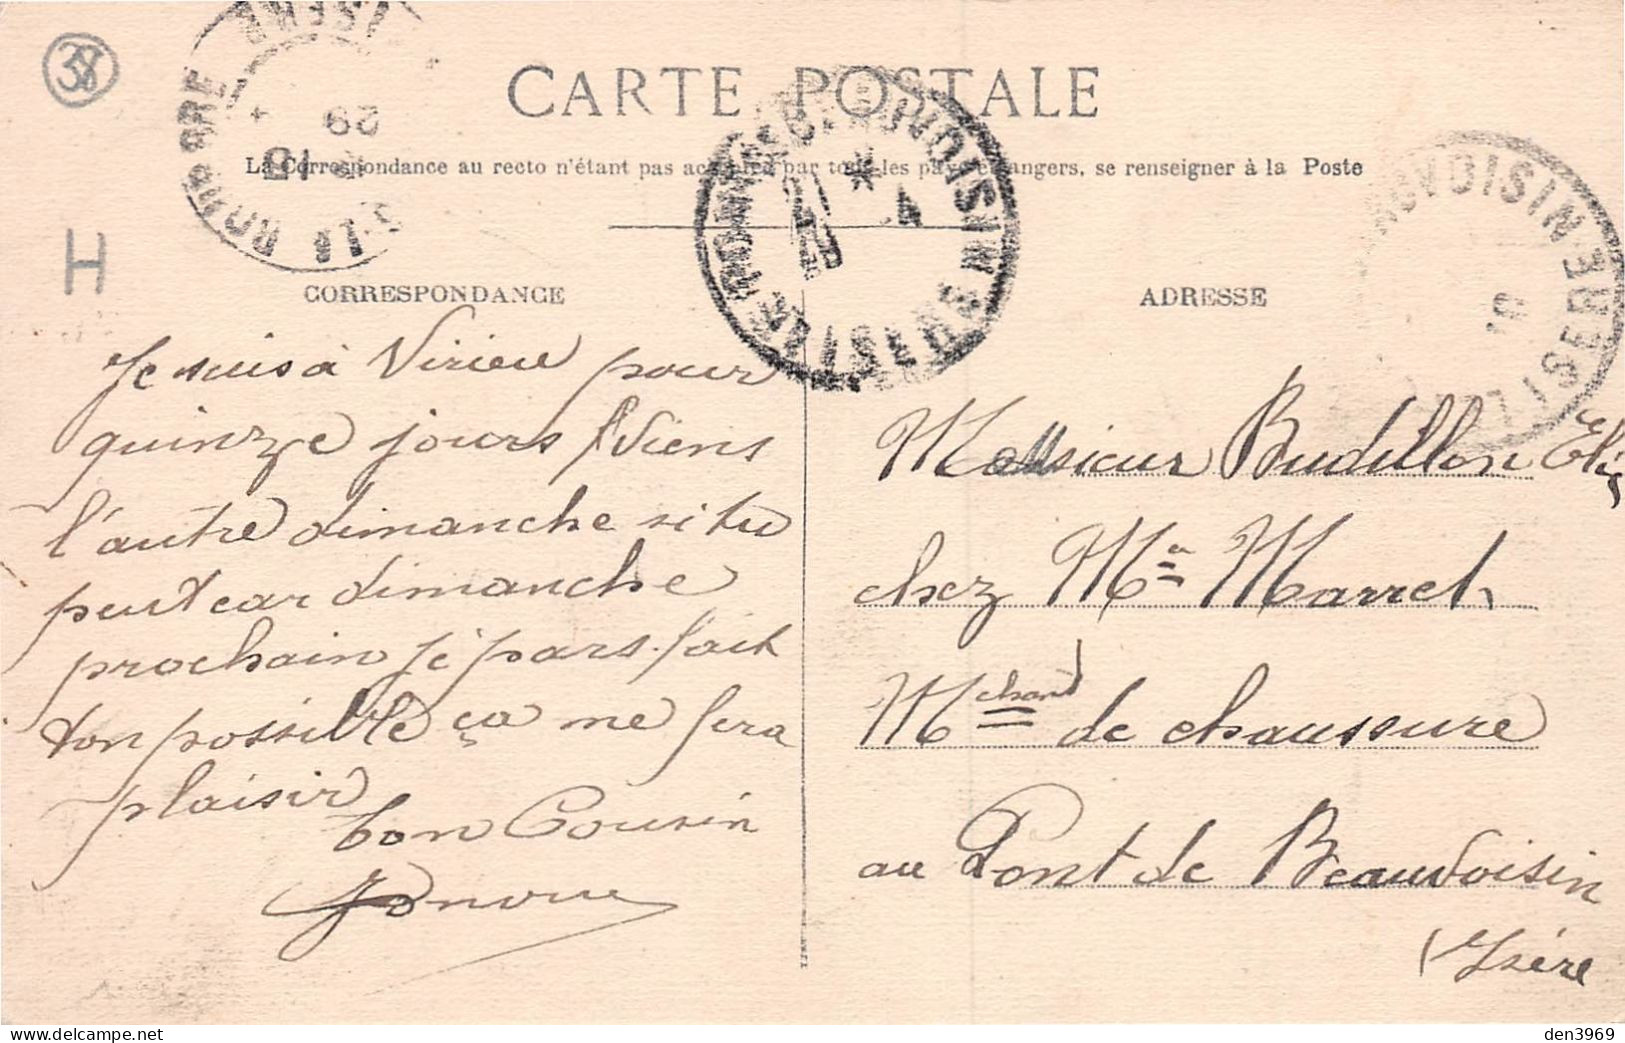 38
CARTE POSTALE
La Correspondance au recto n'étant pas acceptée par tous les pays étrangers, se renseigner à la Poste
H
CORRESPONDANCE
Je suis à Virieu pour
quinze jours Viens
l'autre dimanche si tu
peut car dimanche
prochain je pars. fait
ton possible ça me fera
plaisir
ton Cousin
ADRESSE
Monsieur Budillon
chez Mr Marrel
Mchand de chaussure
au Pont de Beauvoisin
Isère
BEAUVOISIN
ISERE
10
ISERE
15
29
den3969